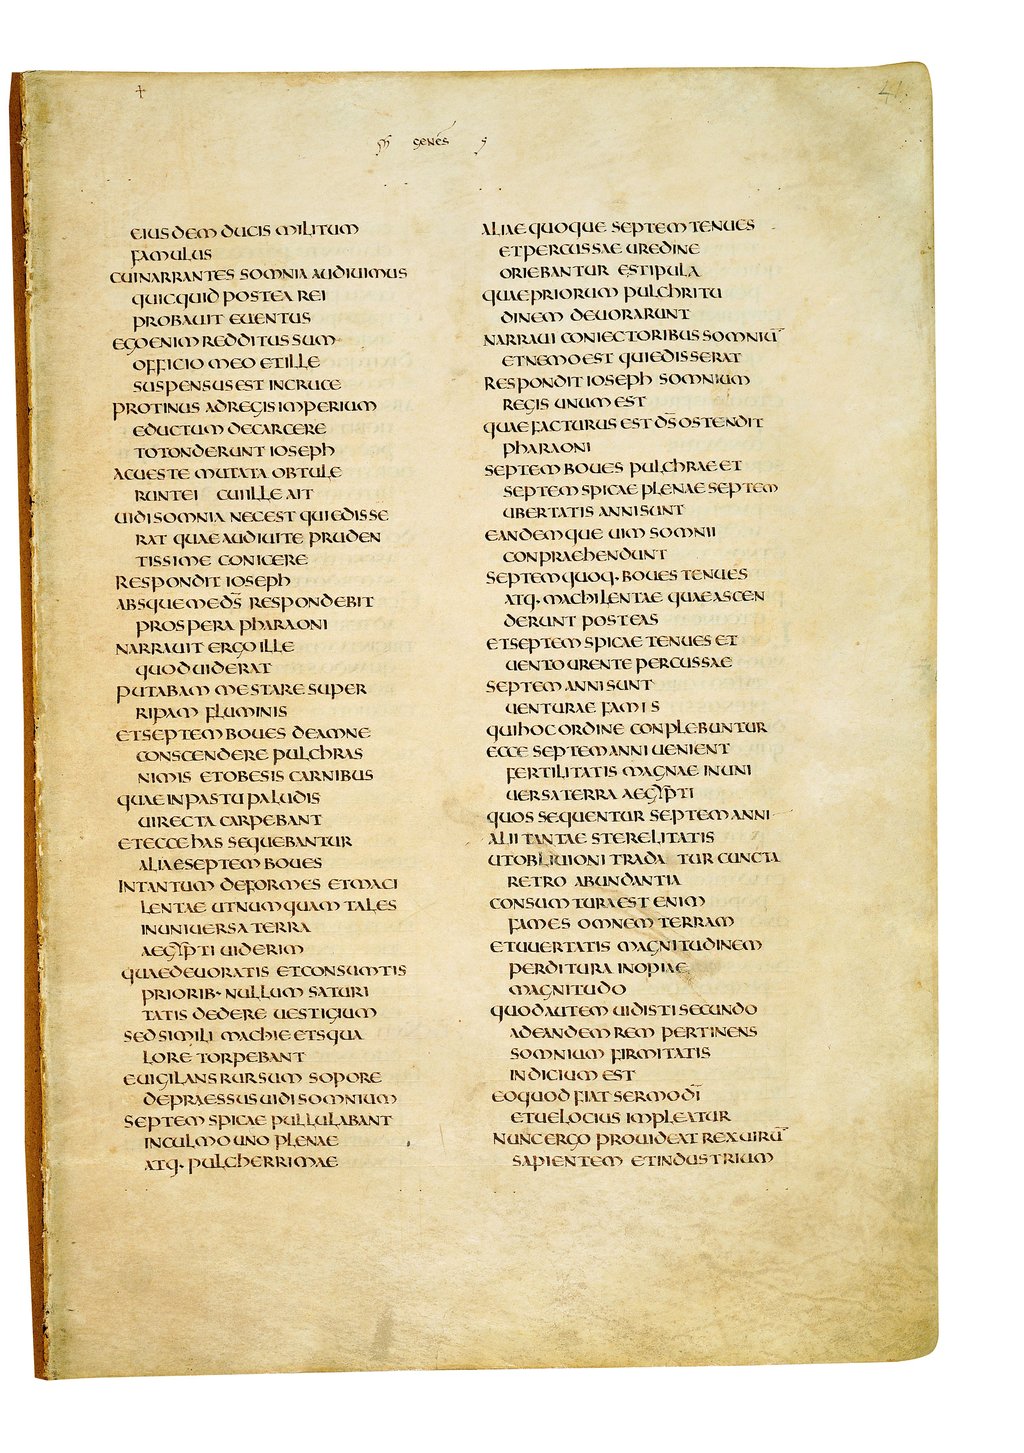 +
41.
GENES̄
EIUSDEM DUCIS MILITUM
FAMULUS
CUI NARRANTES SOMNIA AUDIUIMUS
QUICQUID POSTEA REI
PROBAUIT EUENTUS
EGO ENIM REDDITUS SUM
OFFICIO MEO ET ILLE
SUSPENSUS EST IN CRUCE
PROTINUS AD REGIS IMPERIUM
EDUCTUM DE CARCERE
TOTONDERUNT IOSEPH
AC UESTE MUTATA OBTULE
RUNT EI CUI ILLE AIT
UIDI SOMNIA NEC EST QUI EDISSE
RAT QUAE AUDIUI TE PRUDEN
TISSIME CONICERE
RESPONDIT IOSEPH
ABSQUE ME D̄S̄ RESPONDEBIT
PROSPERA PHARAONI
NARRAUIT ERGO ILLE
QUOD UIDERAT
PUTABAM ME STARE SUPER
RIPAM FLUMINIS
ET SEPTEM BOUES DE AMNE
CONSCENDERE PULCHRAS
NIMIS ET OBESIS CARNIBUS
QUAE IN PASTU PALUDIS
UIRECTA CARPEBANT
ET ECCE HAS SEQUEBANTUR
ALIAE SEPTEM BOUES
IN TANTUM DEFORMES ET MACI
LENTAE UT NUMQUAM TALES
IN UNIUERSA TERRA
AEGYPTI UIDERIM
QUAE DEUORATIS ET CONSUMTIS
PRIORIB· NULLUM SATURI
TATIS DEDERE UESTIGIUM
SED SIMILI MACHIE ET SQUA
LORE TORPEBANT
EUIGILANS RURSUM SOPORE
DEPRAESSUS UIDI SOMNIUM
SEPTEM SPICAE PULLULABANT
IN CULMO UNO PLENAE
ATQ· PULCHERRIMAE
ALIAE QUOQUE SEPTEM TENUES
ET PERCUSSAE UREDINE
ORIEBANTUR E STIPULA
QUAE PRIORUM PULCHRITU
DINEM DEUORARUNT
NARRAUI CONIECTORIBUS SOMNIŪ
ET NEMO EST QUI EDISSERAT
RESPONDIT IOSEPH SOMNIUM
REGIS UNUM EST
QUAE FACTURUS EST D̄S̄ OSTENDIT
PHARAONI
SEPTEM BOUES PULCHRAE ET
SEPTEM SPICAE PLENAE SEPTEM
UBERTATIS ANNI SUNT
EANDEMQUE UIM SOMNII
CONPRAEHENDUNT
SEPTEM QUOQ· BOUES TENUES
ATQ· MACHILENTAE QUAE ASCEN
DERUNT POST EAS
ET SEPTEM SPICAE TENUES ET
UENTO URENTE PERCUSSAE
SEPTEM ANNI SUNT
UENTURAE FAMIS
QUI HOC ORDINE CONPLEBUNTUR
ECCE SEPTEM ANNI UENIENT
FERTILITATIS MAGNAE IN UNI
UERSA TERRA AEGYPTI
QUOS SEQUENTUR SEPTEM ANNI
ALII TANTAE STERELITATIS
UT OBLIUIONI TRADA TUR CUNCTA
RETRO ABUNDANTIA
CONSUMTURA EST ENIM
FAMES OMNEM TERRAM
ET UUERTATIS MAGNITUDINEM
PERDITURA INOPIAE
MAGNITUDO
QUOD AUTEM UIDISTI SECUNDO
AD EANDEM REM PERTINENS
SOMNIUM FIRMITATIS
INDICIUM EST
EO QUOD FIAT SERMO D̄Ī
ET UELOCIUS IMPLEATUR
NUNC ERGO PROUIDEAT REX UIRŪ
SAPIENTEM ET INDUSTRIUM